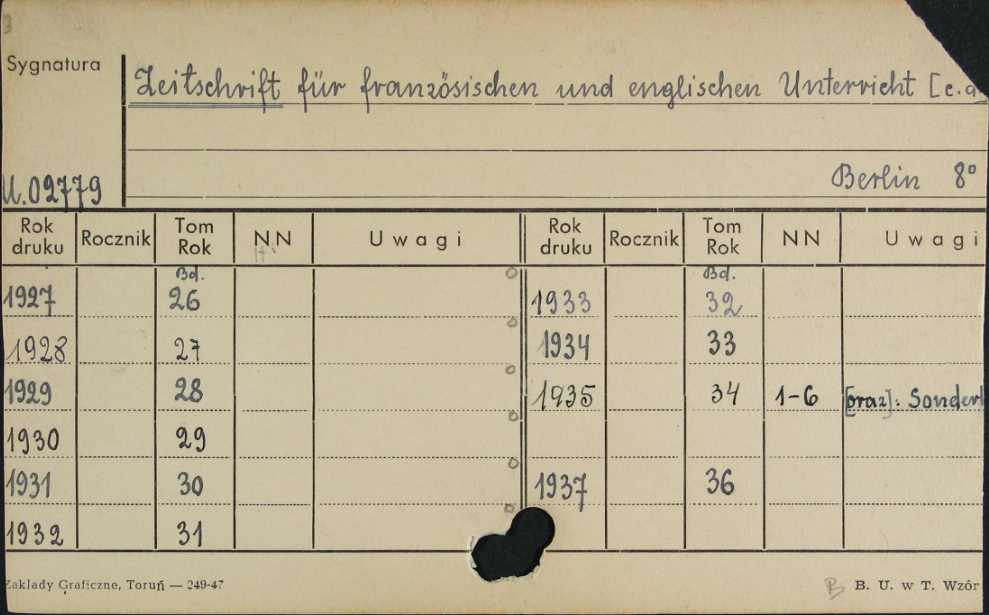 Sygnatura
Zeitschrift für französischen und englischen Unterricht [c.a
Berlin 8°
U.02779
Rok druku Rocznik Tom Rok NN Uwagi Rok druku Rocznik Tom Rok NN Uwagi
Bd. Bd.
1927 26 1933 32
1928 27 1934 33
1929 28 1935 34 1-6 [oraz]: Sonder
1930 29
1931 30 1937 36
1932 31
Zaklady Graficzne, Toruń — 249-47
B B. U. w T. Wzór